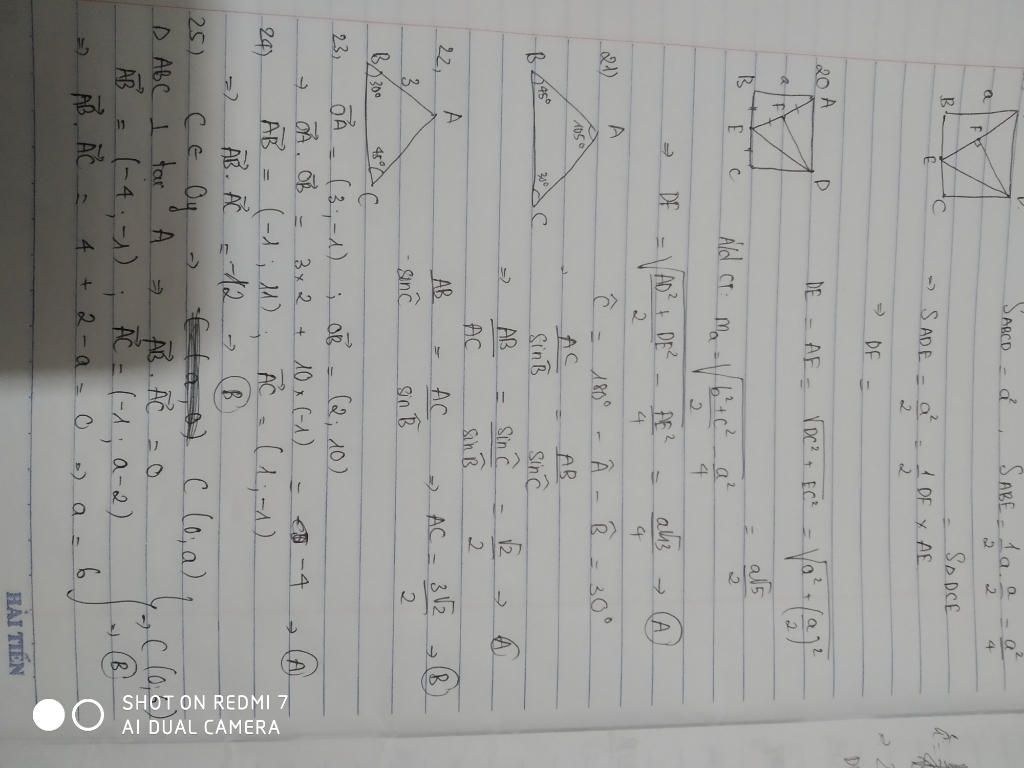 S_ABCD = a², S_ABE = 1/2 a · a/2 = a²/4
= S_ΔDCE
a
B
F
E
C
⇒ S_ADE = a²/2 = 1/2 DF × AE
⇒ DF =
20
A
a
F
D
B
E
C
DE = AE = √(DC² + EC²) = √(a² + (a/2)²)
= a√5/2
Ad ct: m_a = √((b² + c²)/2 - a²/4)
⇒ DF = √((AD² + DE²)/2 - AE²/4) = a√13/4 → Ⓐ
21)
A
105°
B
45°
30°
C
Ĉ = 180° - Â - B̂ = 30°
→ AC/sin B̂ = AB/sin Ĉ
⇒ AB/AC = sin Ĉ/sin B̂ = √2/2 → Ⓐ
22,
A
3
B
30°
45°
C
AB/sin Ĉ = AC/sin B̂ ⇒ AC = 3√2/2 → Ⓑ
23, OA⃗ = (3; -1) ; OB⃗ = (2; 10)
→ OA⃗ . OB⃗ = 3×2 + 10×(-1) = -4 → Ⓐ
24) AB⃗ = (-1; 11) ; AC⃗ = (1; -1)
⇒ AB⃗ . AC⃗ = -12 → Ⓑ
25) C ∈ Oy → C (0; a)
Δ ABC ⊥ tại A ⇒ AB⃗ . AC⃗ = 0
AB⃗ = (-4; -1) ; AC⃗ = (-1; a-2)
⇒ AB⃗ . AC⃗ = 4 + 2 - a = 0 ⇒ a = 6
⇒ C (0;
⇒ Ⓑ
HẢI TIẾN
SHOT ON REDMI 7
AI DUAL CAMERA